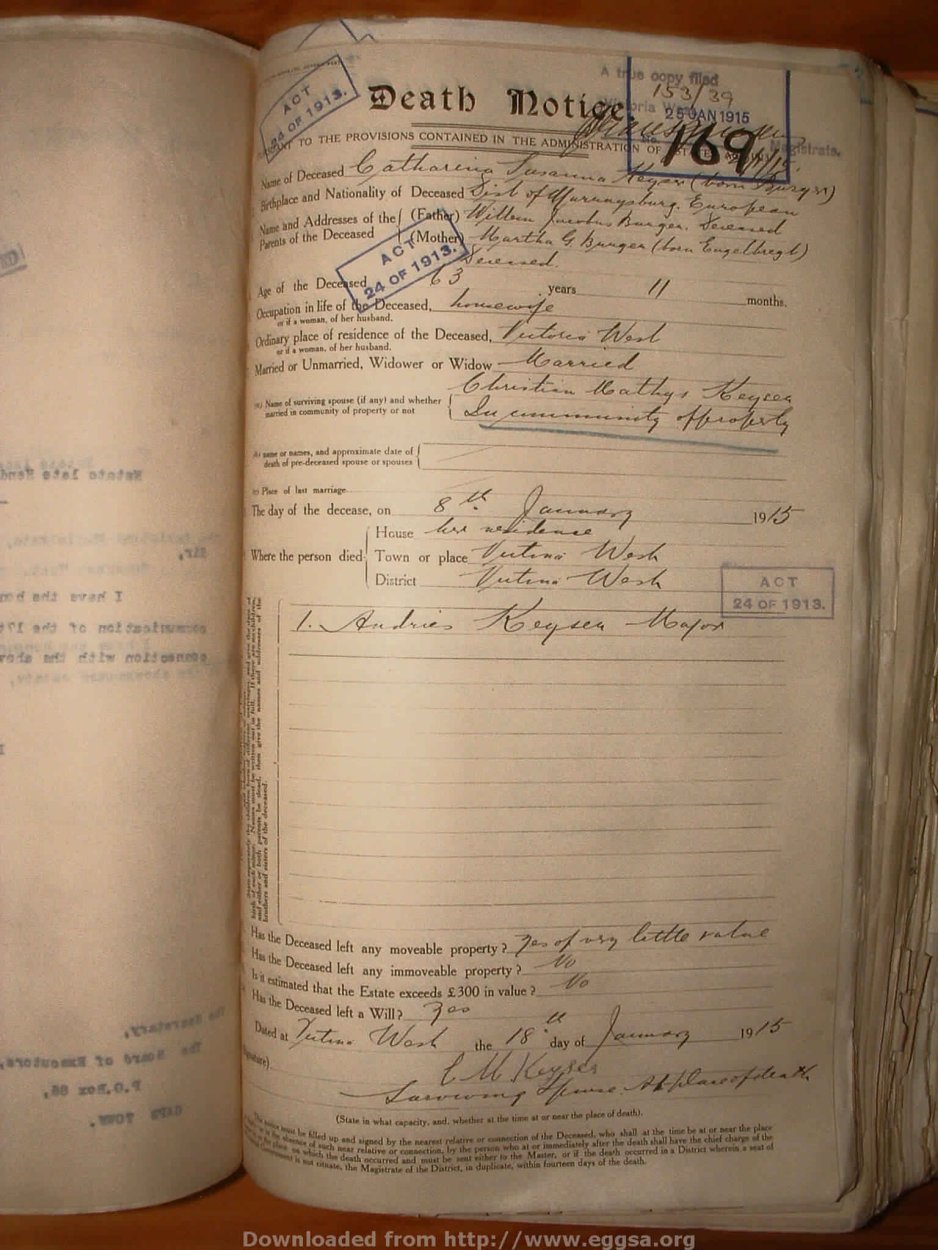 A true copy filed
153/39
25 JAN 1915
Magistrate.
169
ACT
24 OF 1913.
Death Notice.
TO THE PROVISIONS CONTAINED IN THE ADMINISTRATION OF
Name of Deceased Catharina Susanna Keyser (born Burger)
Birthplace and Nationality of Deceased Dist of Murraysburg. European
Name and Addresses of the Parents of the Deceased (Father) Willem Jacobus Burger, Deceased
(Mother) Martha G. Burger (born Engelbregt)
Deceased.
ACT
24 OF 1913.
Age of the Deceased 63 years 11 months.
Occupation in life of the Deceased, housewife
or if a woman, of her husband.
Ordinary place of residence of the Deceased, Victoria West
or if a woman, of her husband.
Married or Unmarried, Widower or Widow Married
(a) Name of surviving spouse (if any) and whether married in community of property or not Christian Mathys Keyser
In community of property
(b) name or names, and approximate date of
death of pre-deceased spouse or spouses
(c) Place of last marriage
The day of the decease, on 8th January 1915
House her residence
Where the person died Town or place Victoria West
District Victoria West
ACT
24 OF 1913.
1. Andries Keyser Major
brothers and sisters of the deceased.
Has the Deceased left any moveable property? Yes of very little value
Has the Deceased left any immoveable property? No
Is it estimated that the Estate exceeds £300 in value? No
Has the Deceased left a Will? Yes
Dated at Victoria West the 18th day of January 1915
C M Keyser
Surviving Spouse. At place of death
(State in what capacity, and, whether at the time at or near the place of death).
notice must be filled up and signed by the nearest relative or connection of the Deceased, who shall at the time be at or near the place
absence of such near relative or connection, by the person who at or immediately after the death shall have the chief charge of the
on which the death occurred and must be sent either to the Master, or if the death occurred in a District wherein a seat of
is not situate, the Magistrate of the District, in duplicate, within fourteen days of the death.
Downloaded from http://www.eggsa.org